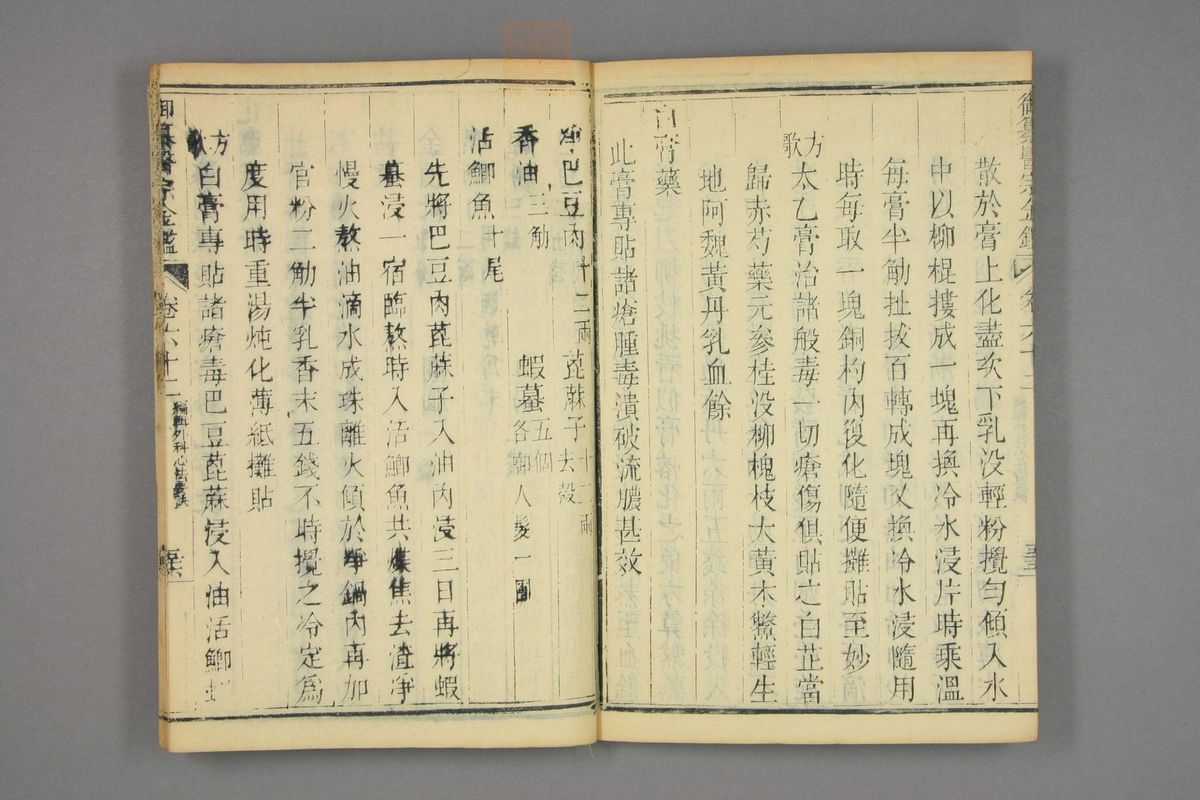 散於膏上化盡次下乳沒輕粉攪勻傾入水
中以柳棍摟成一塊再換冷水浸片時乘溫
每膏半觔扯拔百轉成塊又換冷水浸隨用
時每取一塊銅杓內復化隨便攤貼至妙
方歌
太乙膏治諸般毒一切瘡傷俱貼之白芷當
歸赤芍藥元參桂沒柳槐枝大黃木鱉輕生
地阿魏黃丹乳血餘
白膏藥
此膏專貼諸瘡腫毒潰破流膿甚效
淨巴豆肉十二兩 蓖蔴子去殼十二兩
香油三觔 蝦蟇五個各啣人髮一團
活鯽魚十尾
先將巴豆肉蓖蔴子入油內浸三日再將蝦
蟇浸一宿臨熬時入活鯽魚共煠焦去渣淨
慢火熬油滴水成珠離火傾於淨鍋內再加
官粉二觔半乳香末五錢不時攪之冷定為
度用時重湯炖化薄紙攤貼
方歌
白膏專貼諸瘡毒巴豆蓖蔴浸入油活鯽
御纂醫宗金鑑 卷六十二 編輯外科心法要訣